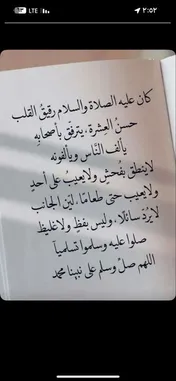 LTE ٢:٥٢
كان عليه الصلاة والسلام رقيقُ القلب
حسنُ العِشرة، يترفّق بأصحابِه
يألف النّاس ويألفونه
لاينطق بفُحشٍ ولايعيبُ على أحدٍ
ولايعيب حتى طعامًا، ليّن الجانب
لايُردّ سائلًا، وليس بفظٍ ولاغليظ
صلوا عليه وسلموا تسامياً
اللهم صلّ وسلم على نبينا محمد